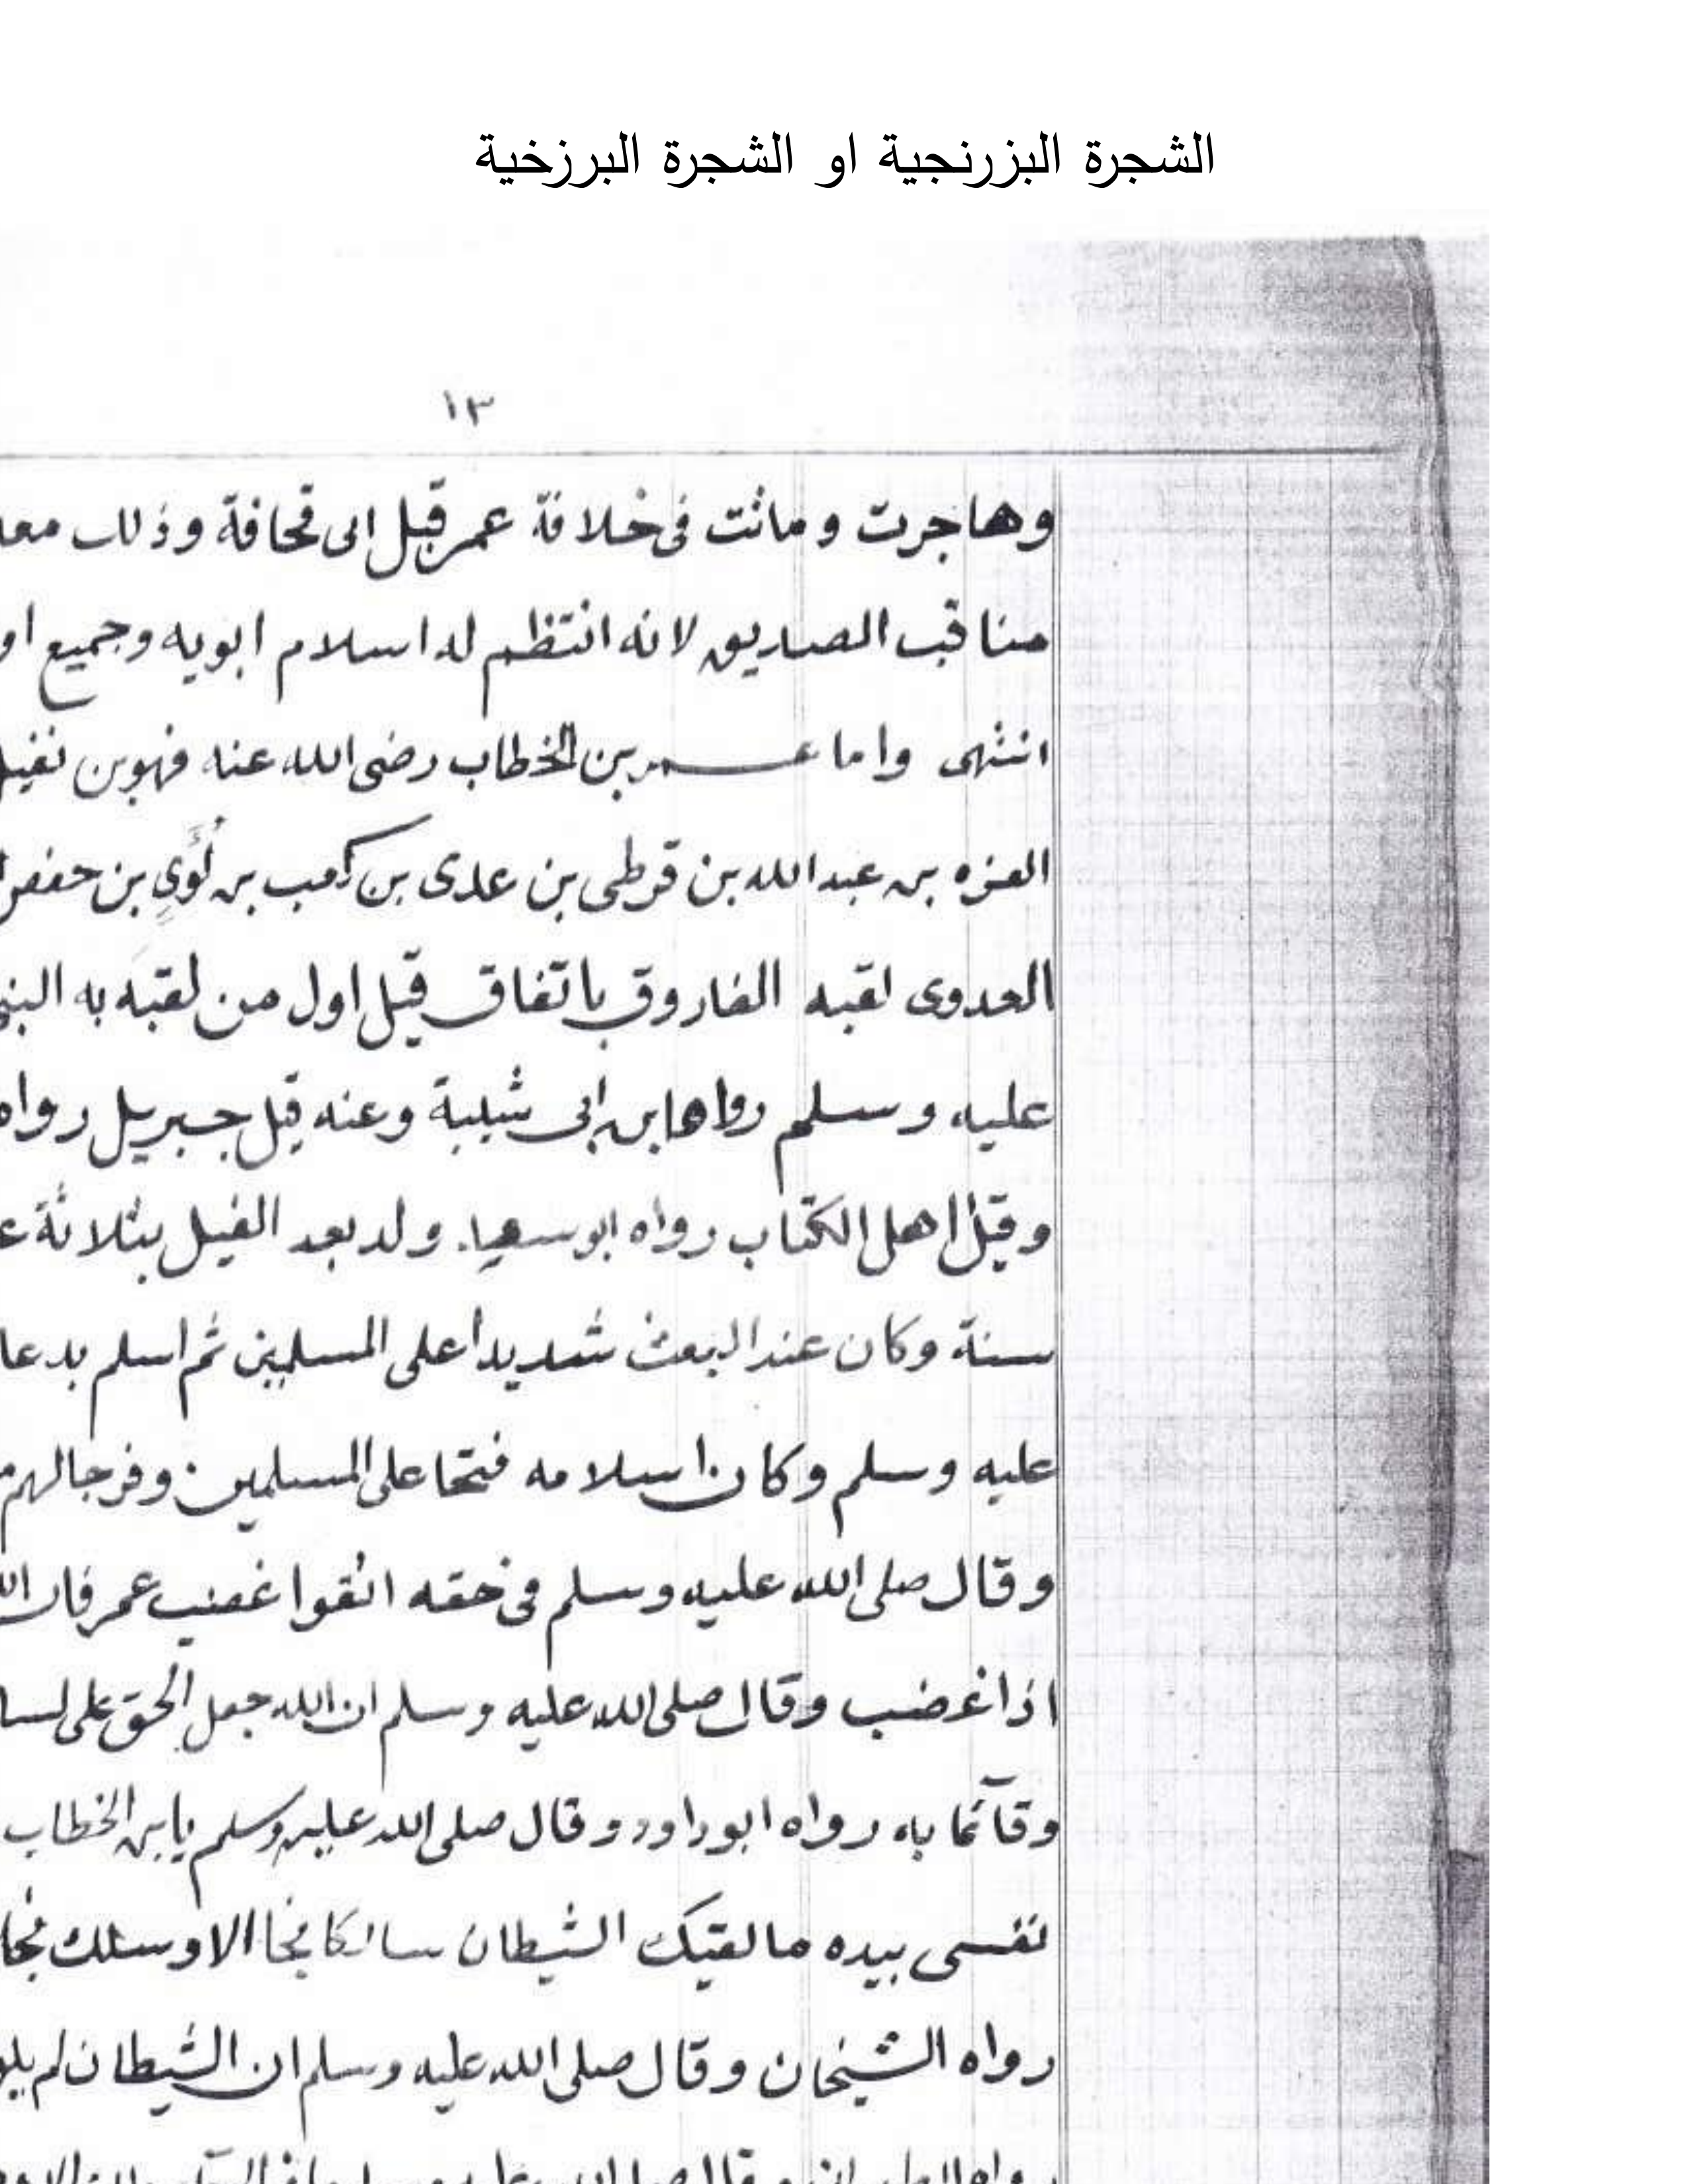 الشجرة البزرنجية او الشجرة البرزخية
١٣
وهاجرت وماتت فى خلافة عمر قبل ابى قحافة وذلك معد
مناقب الصديق لانه انتظم له اسلام ابويه وجميع او
انتهى واما عمر بن الخطاب رضى الله عنه فهوبن نفيل
العزه بن عبد الله بن قرطى بن عدى بن كعب بن لُؤَيِ بن حفص
العدوى لقبه الفاروق باتفاق قيل اول من لقبه به النبى
عليه وسلم رواها بن ابى شيبة وعنه قيل جبريل رواه
وقيل اهل الكتاب رواه ابو سعيد ولد بعد الفيل بثلاثة ع
سنة وكان عند البعث شديدا على المسلمين ثم اسلم بدعا
عليه وسلم وكان اسلامه فتحا على المسلمين وفرجا لهم
وقال صلى الله عليه وسلم فى حقه اتقوا غضب عمر فان الل
اذا غضب وقال صلى الله عليه وسلم ان الله جعل الحق على لسا
وقآئما به رواه ابو داود وقال صلى الله عليه وسلم يا بن الخطاب
نفسى بيده ما لقيك الشيطان سالكا فجا الا وسلك فجا
رواه الشيخان وقال صلى الله عليه وسلم ان الشيطان لم يلق